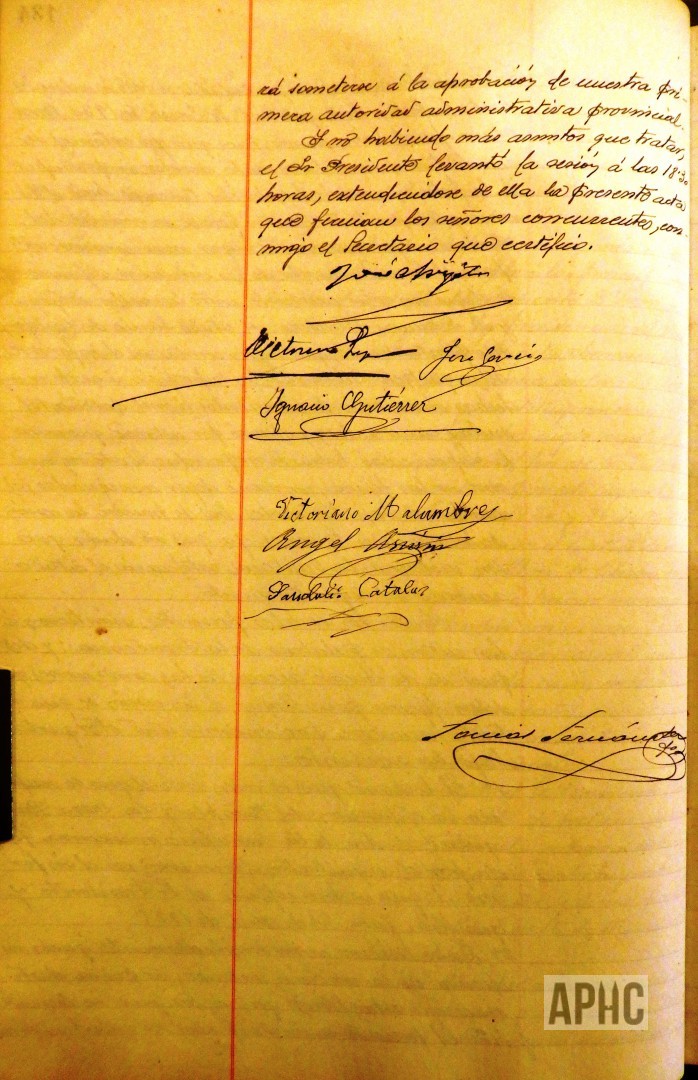 rá someterse á la aprobación de nuestra pri-
mera autoridad administrativa provincial.
Y no habiendo más asuntos que tratar,
el Sr Presidente levantó la sesión á las 18'30
horas, extendiéndose de ella la presente acta
que firman los señores concurrentes, con-
migo el Secretario que certifico.
José
Victoriano
José García
Ignacio Gutiérrez
Victoriano Malumbres
Angel
Catalan
Tomás Fernández
APHC